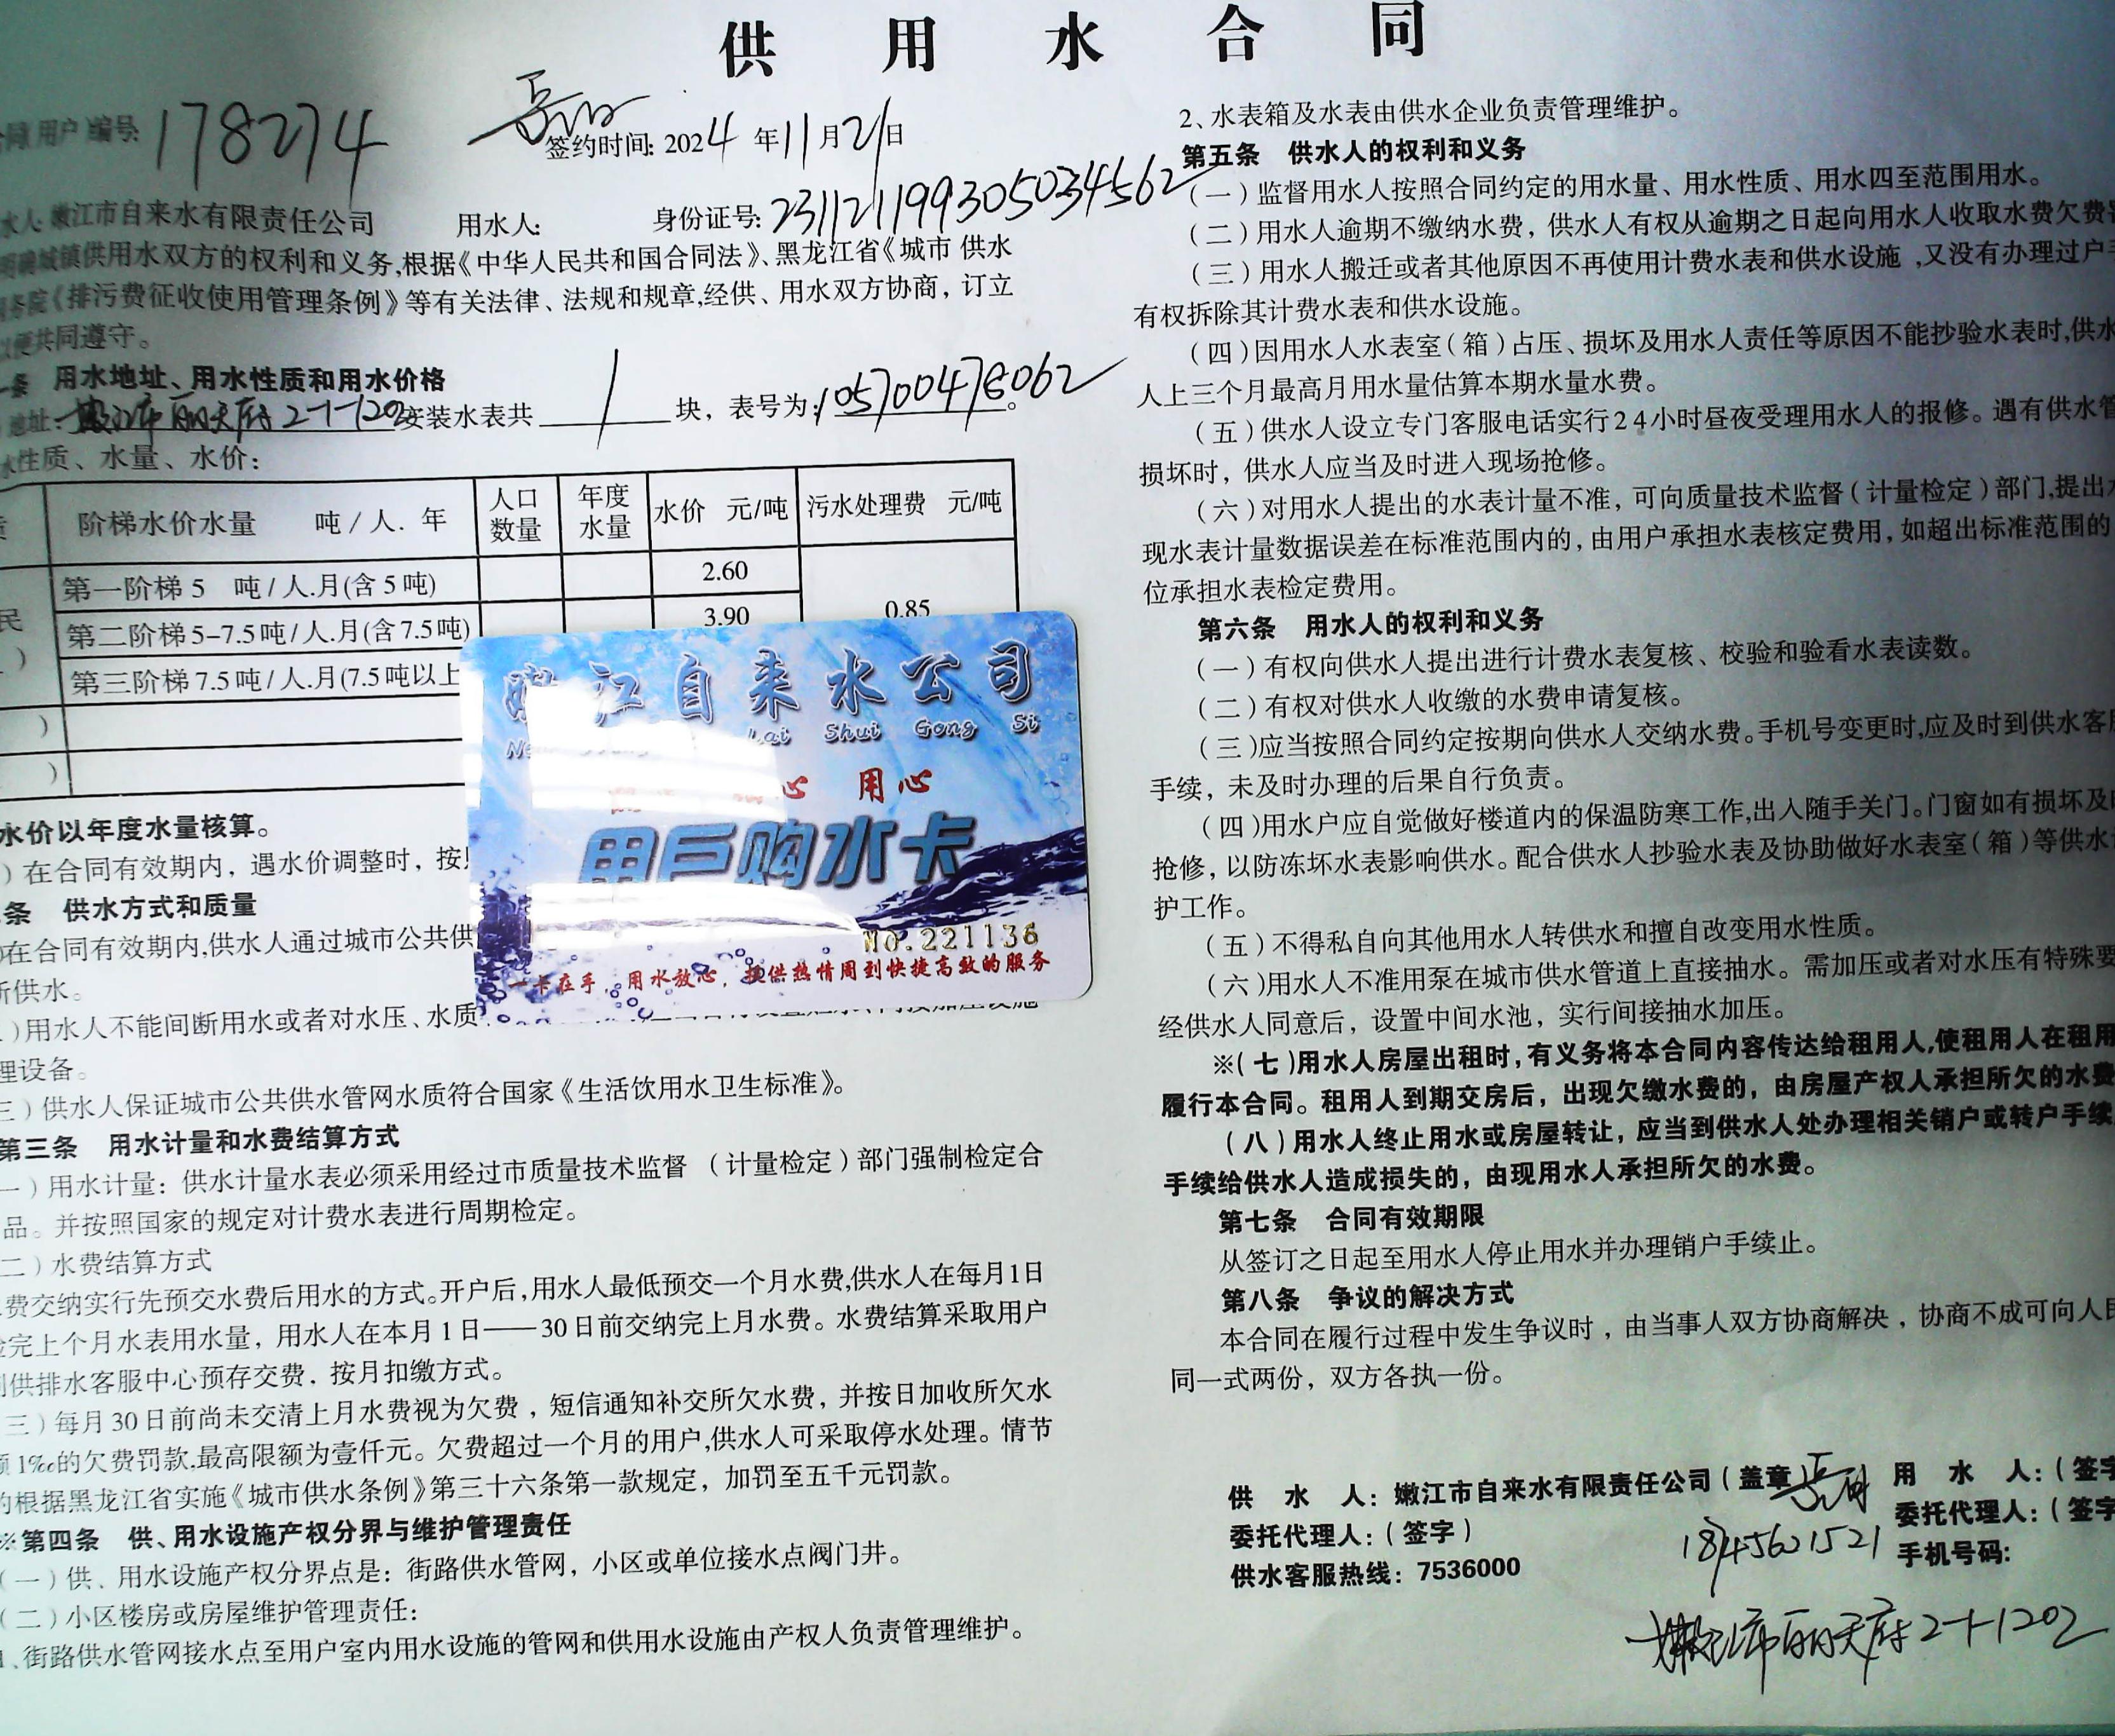 供用水合同
同用户编号: 178274
签约时间: 2024年11月21日
水人: 嫩江市自来水有限责任公司 用水人: 身份证号: 231121199305034562
明确城镇供用水双方的权利和义务,根据《中华人民共和国合同法》、黑龙江省《城市 供水
务院《排污费征收使用管理条例》等有关法律、法规和规章,经供、用水双方协商，订立
以便共同遵守。
条 用水地址、用水性质和用水价格
地址: 嫩江市丽天府2-1-1202 安装水表共 1 块，表号为: 105700478062。
水性质、水量、水价：
阶梯水价水量 吨/人.年 人口数量 年度水量 水价 元/吨 污水处理费 元/吨
第一阶梯 5 吨/人.月(含5吨) 2.60
民 第二阶梯 5-7.5吨/人.月(含7.5吨) 3.90 0.85
第三阶梯 7.5吨/人.月(7.5吨以上
水价以年度水量核算。
）在合同有效期内，遇水价调整时，按
条 供水方式和质量
)在合同有效期内,供水人通过城市公共供
所供水。
)用水人不能间断用水或者对水压、水质
理设备。
三）供水人保证城市公共供水管网水质符合国家《生活饮用水卫生标准》。
第三条 用水计量和水费结算方式
一）用水计量：供水计量水表必须采用经过市质量技术监督（计量检定）部门强制检定合
品。并按照国家的规定对计费水表进行周期检定。
二）水费结算方式
费交纳实行先预交水费后用水的方式。开户后,用水人最低预交一个月水费,供水人在每月1日
完上个月水表用水量，用水人在本月1日——30日前交纳完上月水费。水费结算采取用户
供排水客服中心预存交费，按月扣缴方式。
三）每月30日前尚未交清上月水费视为欠费，短信通知补交所欠水费，并按日加收所欠水
1‰的欠费罚款,最高限额为壹仟元。欠费超过一个月的用户,供水人可采取停水处理。情节
的根据黑龙江省实施《城市供水条例》第三十六条第一款规定，加罚至五千元罚款。
※第四条 供、用水设施产权分界与维护管理责任
（一）供、用水设施产权分界点是：街路供水管网，小区或单位接水点阀门井。
（二）小区楼房或房屋维护管理责任：
1、街路供水管网接水点至用户室内用水设施的管网和供用水设施由产权人负责管理维护。
嫩江自来水公司
Lai Shui Gong Si
心 用心
用户购水卡
NO.221136
一卡在手，用水放心，提供热情周到快捷高效的服务
2、水表箱及水表由供水企业负责管理维护。
第五条 供水人的权利和义务
（一）监督用水人按照合同约定的用水量、用水性质、用水四至范围用水。
（二）用水人逾期不缴纳水费，供水人有权从逾期之日起向用水人收取水费欠费
（三）用水人搬迁或者其他原因不再使用计费水表和供水设施,又没有办理过户
有权拆除其计费水表和供水设施。
（四）因用水人水表室（箱）占压、损坏及用水人责任等原因不能抄验水表时,供水
人上三个月最高月用水量估算本期水量水费。
（五）供水人设立专门客服电话实行24小时昼夜受理用水人的报修。遇有供水管
损坏时，供水人应当及时进入现场抢修。
（六）对用水人提出的水表计量不准，可向质量技术监督（计量检定）部门,提出
现水表计量数据误差在标准范围内的,由用户承担水表核定费用,如超出标准范围的
位承担水表检定费用。
第六条 用水人的权利和义务
（一）有权向供水人提出进行计费水表复核、校验和验看水表读数。
（二）有权对供水人收缴的水费申请复核。
（三）应当按照合同约定按期向供水人交纳水费。手机号变更时,应及时到供水客
手续，未及时办理的后果自行负责。
（四）用水户应自觉做好楼道内的保温防寒工作,出入随手关门。门窗如有损坏及
抢修，以防冻坏水表影响供水。配合供水人抄验水表及协助做好水表室（箱）等供水
护工作。
（五）不得私自向其他用水人转供水和擅自改变用水性质。
（六）用水人不准用泵在城市供水管道上直接抽水。需加压或者对水压有特殊要
经供水人同意后，设置中间水池，实行间接抽水加压。
※（七）用水人房屋出租时,有义务将本合同内容传达给租用人,使租用人在租用
履行本合同。租用人到期交房后，出现欠缴水费的，由房屋产权人承担所欠的水费
（八）用水人终止用水或房屋转让，应当到供水人处办理相关销户或转户手续
手续给供水人造成损失的，由现用水人承担所欠的水费。
第七条 合同有效期限
从签订之日起至用水人停止用水并办理销户手续止。
第八条 争议的解决方式
本合同在履行过程中发生争议时，由当事人双方协商解决，协商不成可向人民
同一式两份，双方各执一份。
供 水 人：嫩江市自来水有限责任公司（盖章 用 水 人：（签字
委托代理人：（签字） 委托代理人：（签字
供水客服热线：7536000 18145621521 手机号码:
嫩江市丽天府2-1-1202